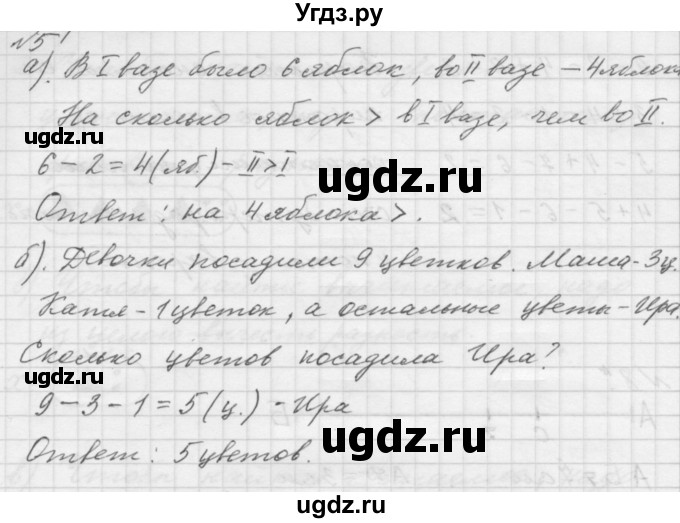 Угdz.ру
№5
а). В I вазе было 6 яблок, во II вазе – 4 яблока
На сколько яблок > в I вазе, чем во II.
6 – 2 = 4 (яб) – II > I
Ответ: на 4 яблока >.
б). Девочки посадили 9 цветков. Маша - 3ц.
Катя - 1 цветок, а остальные цветы - Ира.
Сколько цветов посадила Ира?
9 – 3 – 1 = 5 (ц.) – Ира
Ответ: 5 цветов.
gdz.ru
gdz.ru
gdz.ru
gdz.ru
gdz.ru
gdz.ru
Угdz.ру